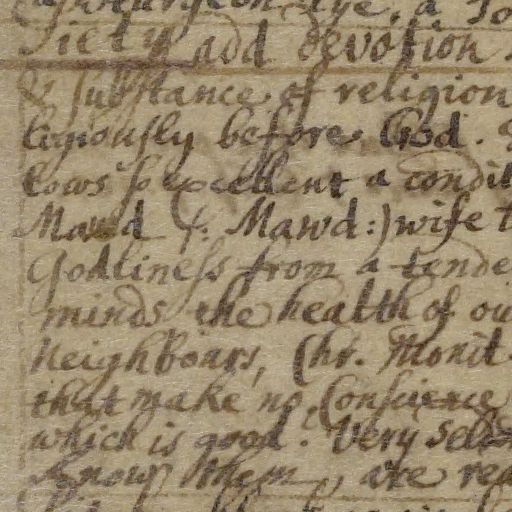 Piety and devotion
& substance of religion
ligiously before God.
lows so excellent a condit
Mawd (: Mawd:) wife t
Godliness from a tende
minds the health of ou
Neighbours, Chr. Monit.
that make no Conscience
which is good. Very
Know them, are rea